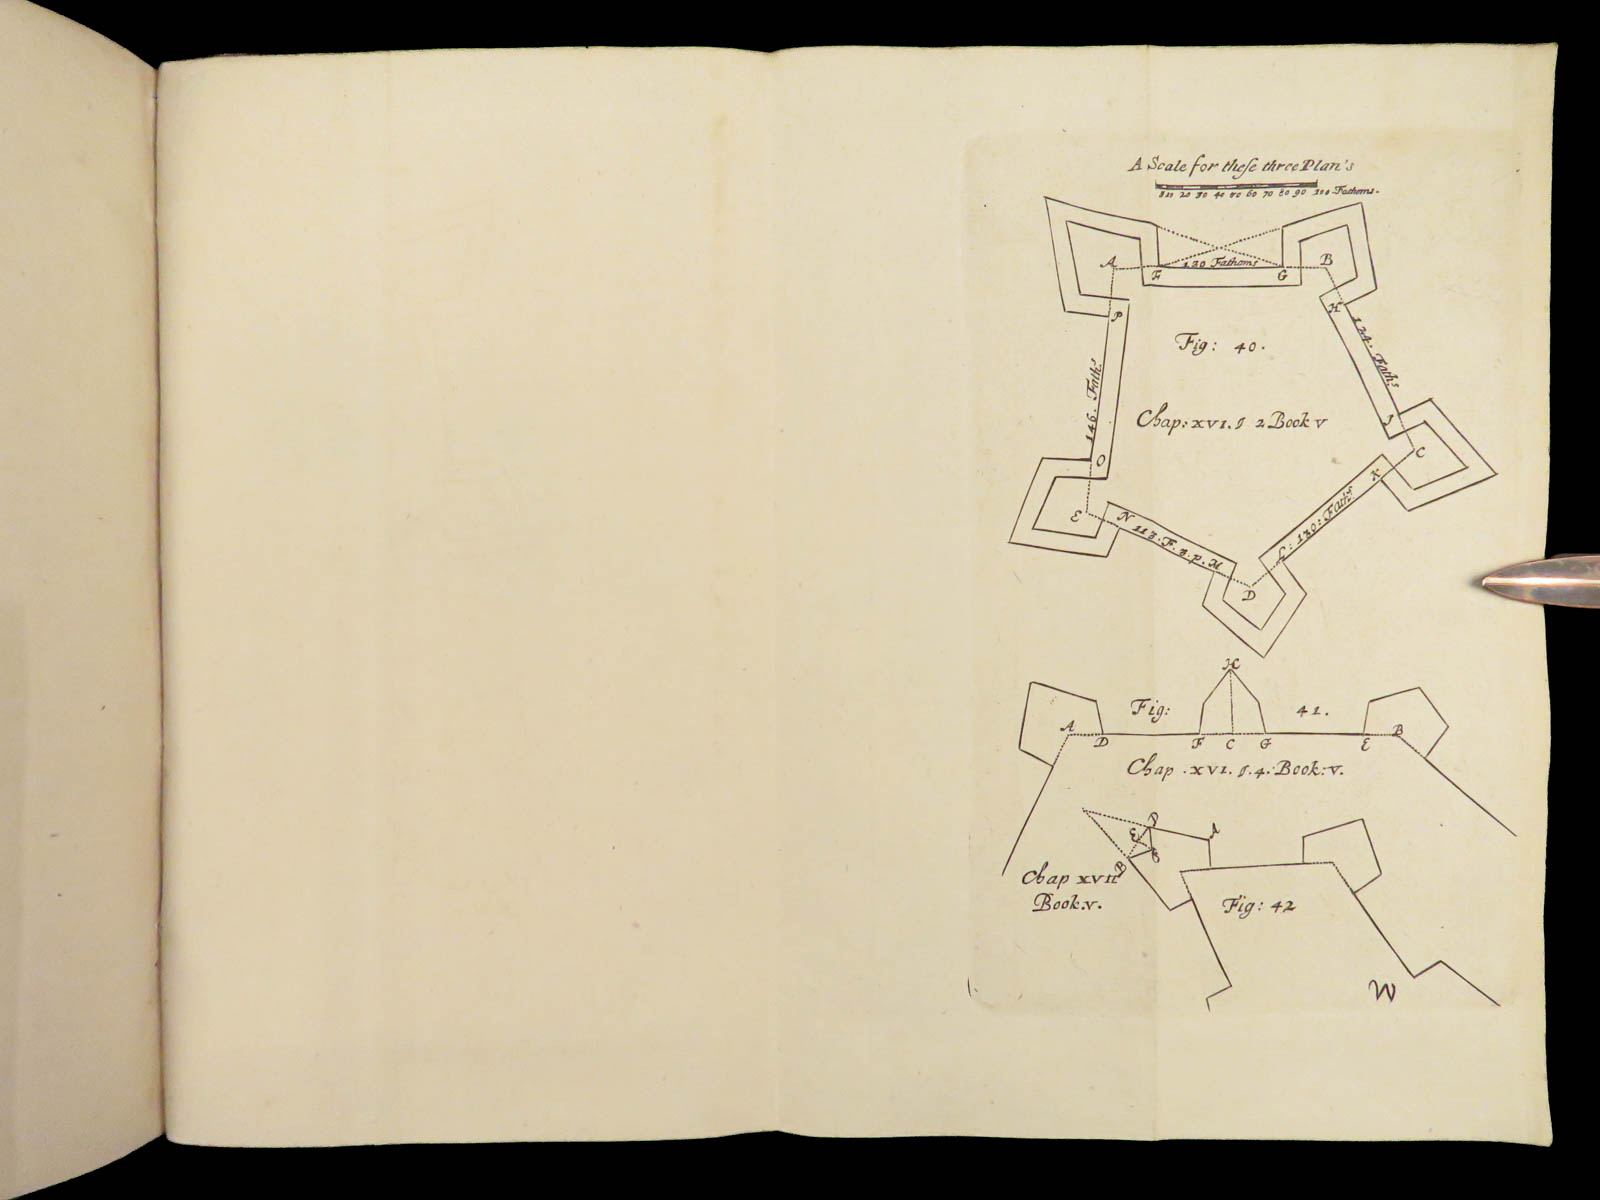 A Scale for theſe three Plan's
5 10 20 30 40 50 60 70 80 90 100 Fathoms.
A F 120 Fathoms G B
P H
146. Fath.s 124. Fath.s
Fig: 40.
Chap: XVI. § 2 Book V
I C
O K
E N 113. F. 3. P. M L: 130: Fath.s
D
H
Fig: 41.
A D F C G E B
Chap . XVI. §. 4. Book: V.
D A
E C
B
Chap XVII
Book. V.
Fig: 42
W